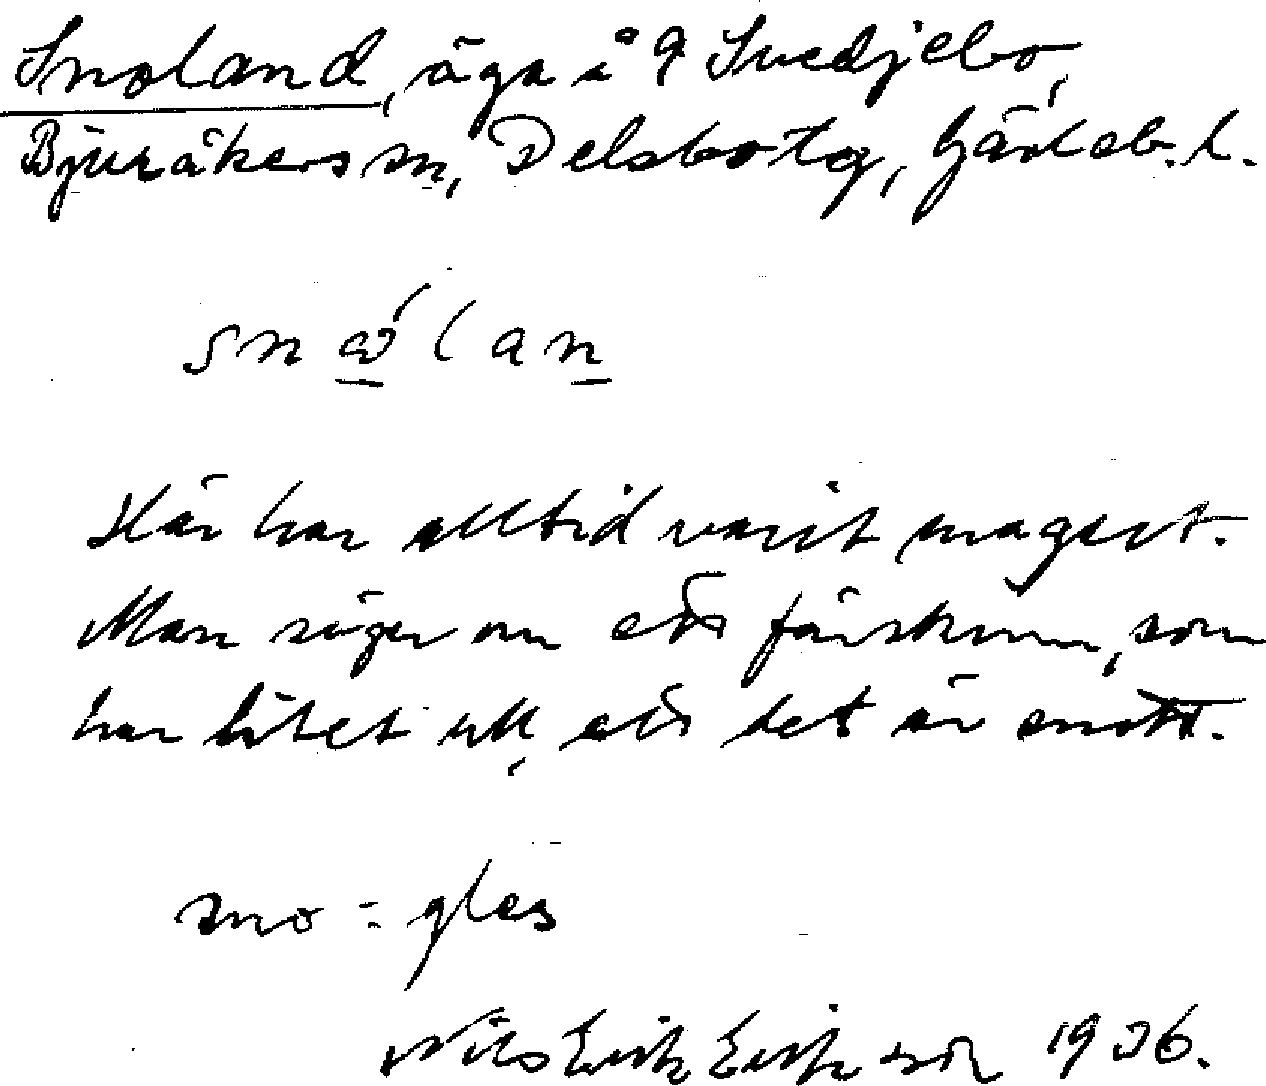 Snoland, äga i 9 Svedjebo,
Bjuråkers sn, Delsbo tg, Gävleb. l.
Här har alltid varit magert.
Man säger om ett fårskinn, som
har litet ull, att det är snott.
sno = gles
Nils Erik Eriksson 1936.